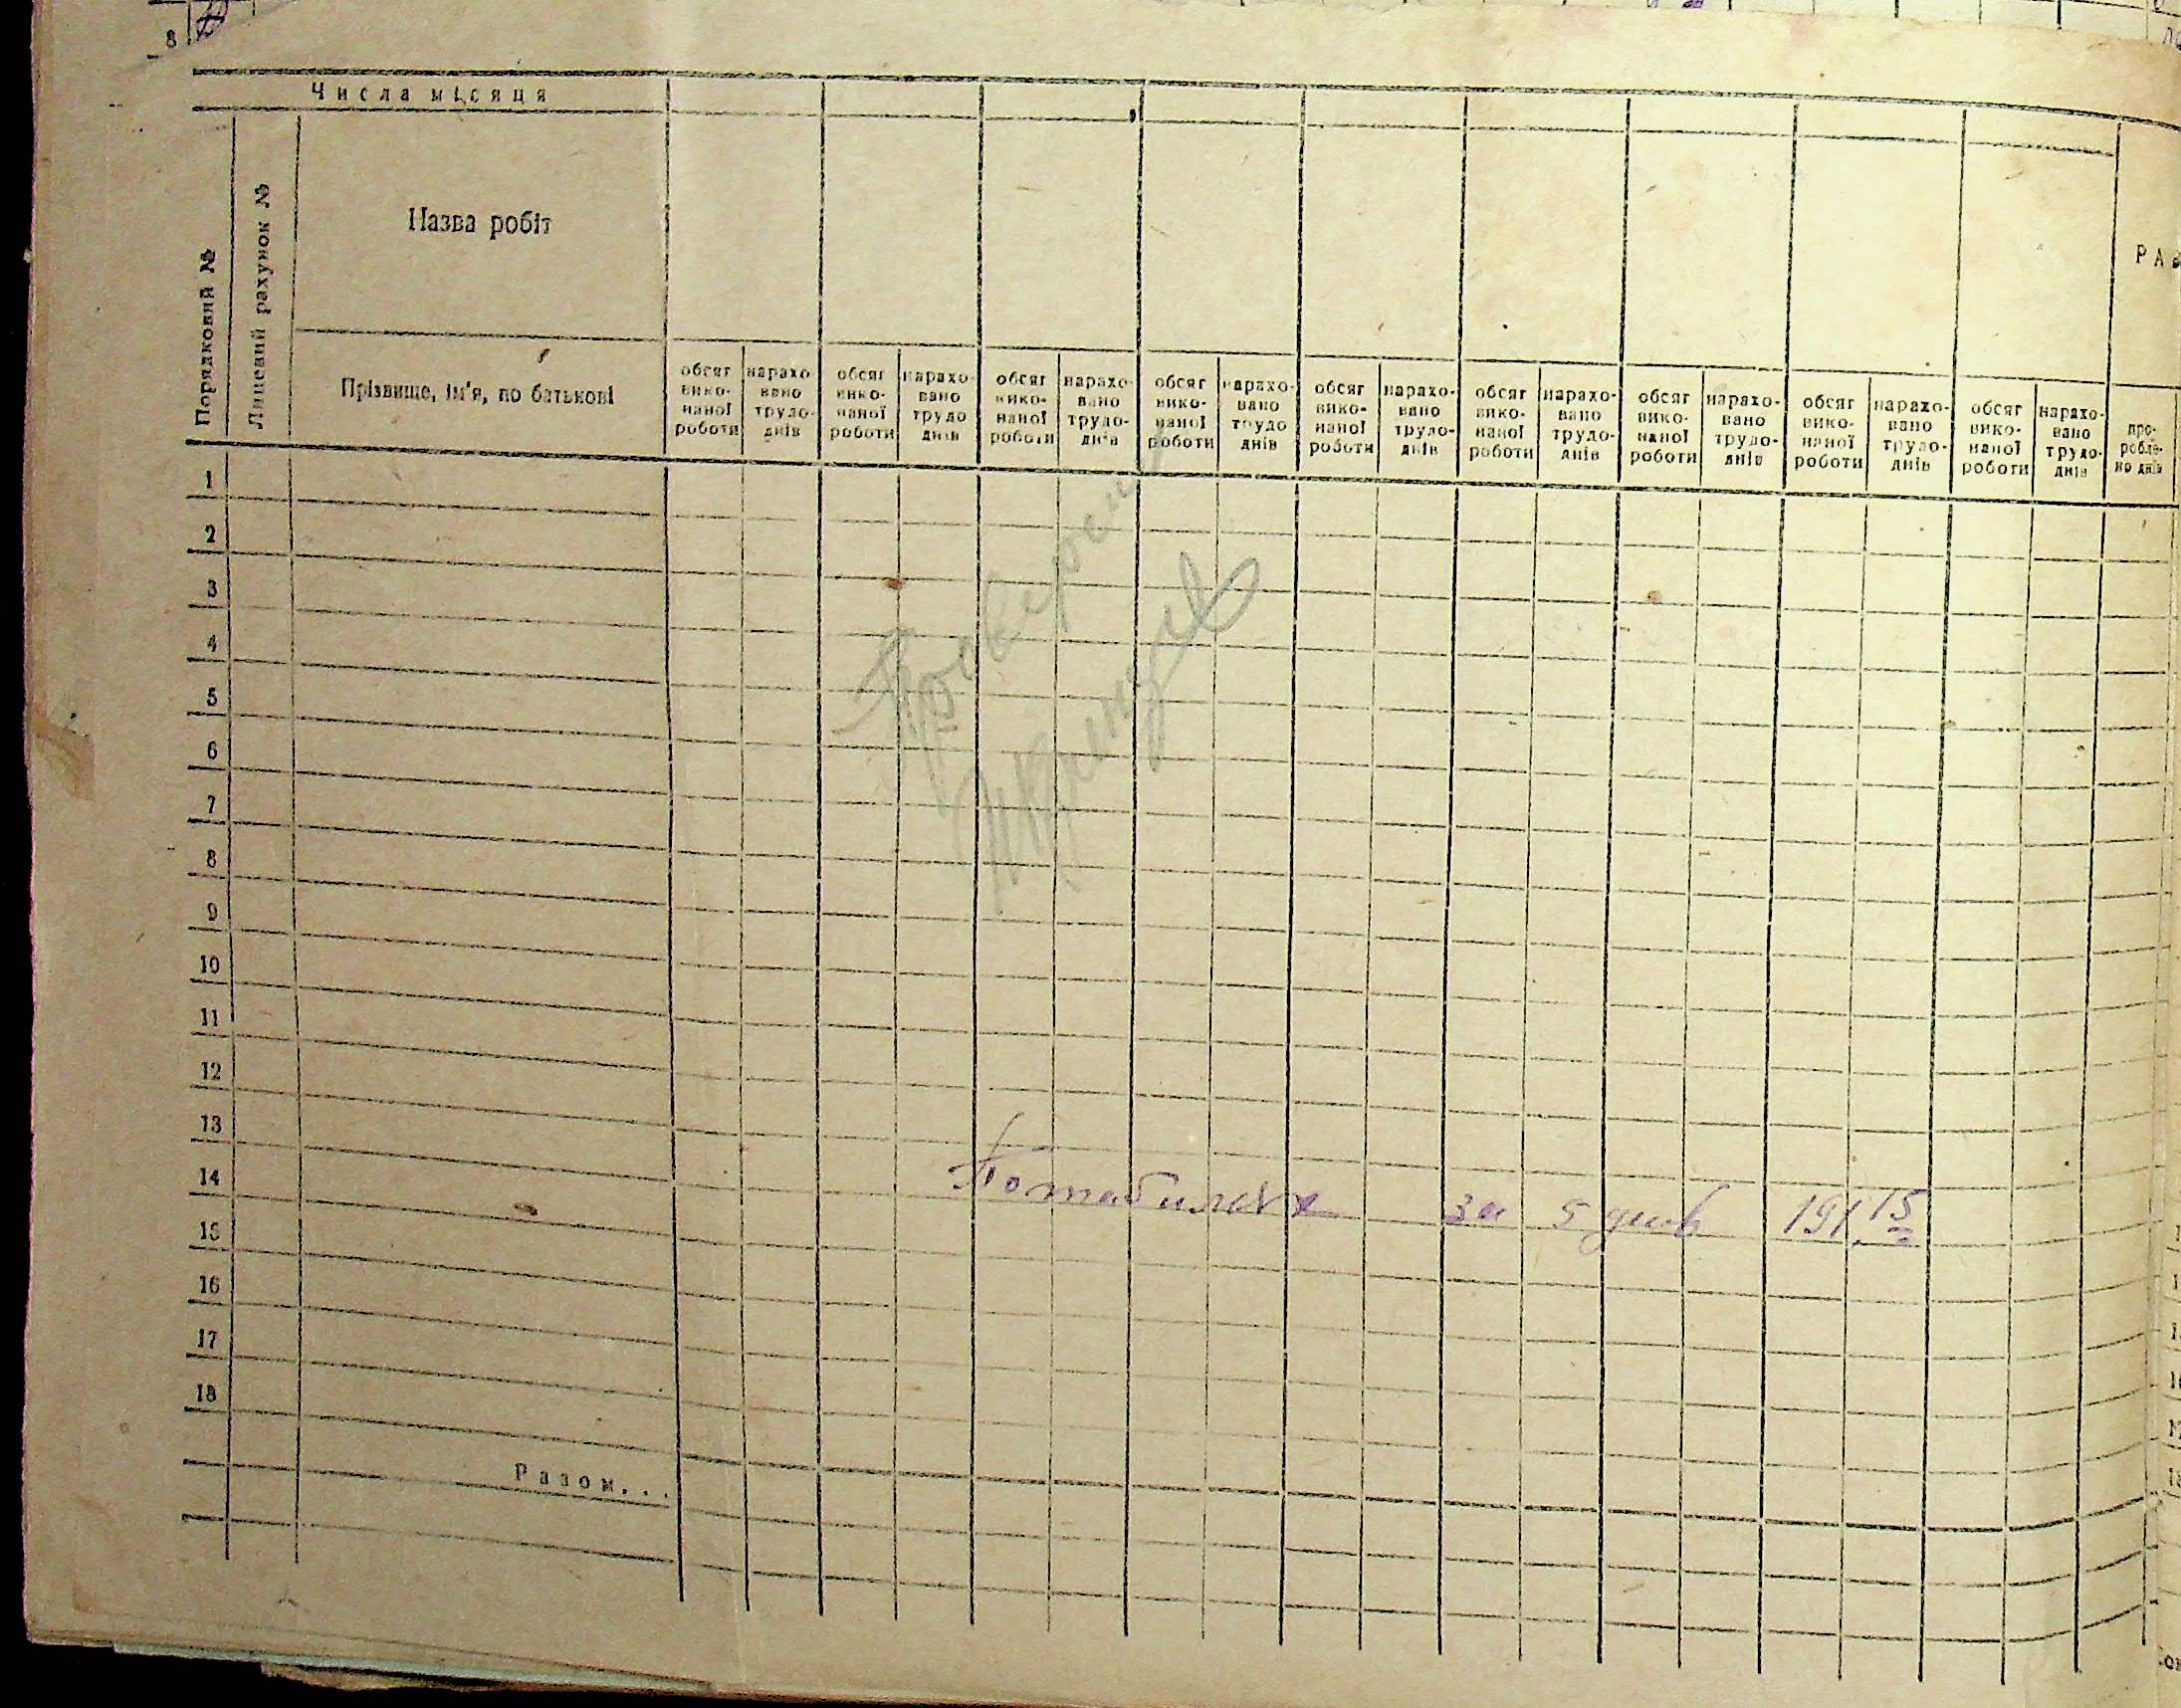 8
Числа місяця
Порядковий №
Лицевий рахунок №
Назва робіт
Прізвище, ім'я, по батькові
обсяг вико- наної роботи нарахо- вано трудо- днів обсяг вико- наної роботи нарахо- вано трудо днів обсяг вико- наної роботи нарахо- вано трудо- днів обсяг вико- наної роботи нарахо- вано трудо днів обсяг вико- наної роботи нарахо- вано трудо- днів обсяг вико- наної роботи нарахо- вано трудо- днів обсяг вико- наної роботи нарахо- вано трудо- днів обсяг вико- наної роботи нарахо- вано трудо- днів обсяг вико- наної роботи нарахо- вано трудо- днів
РАЗ
про- робле- но днів
1
2
3
4
5
6
7
8
9
10
11
12
13
14
за 5 днів 191.15
15
16
17
18
Разом...